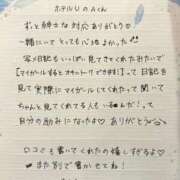 ホテルUのAくん
ずっと紳士な対応ありがとう♡
一緒にいてとっても心地よかった!!
写メ日記もいっぱい見てきてくれたみたいで
【マイガールするとオキニトーク できます!】って日記を
見て実際にマイガールしてたって聞いて
ちゃんと見てくれてる人いるんだ!って
自分の励みになったよ♡ ありがとう
口コミも書いてくれたの嬉しすぎるよ♡
また別で書かせてね!